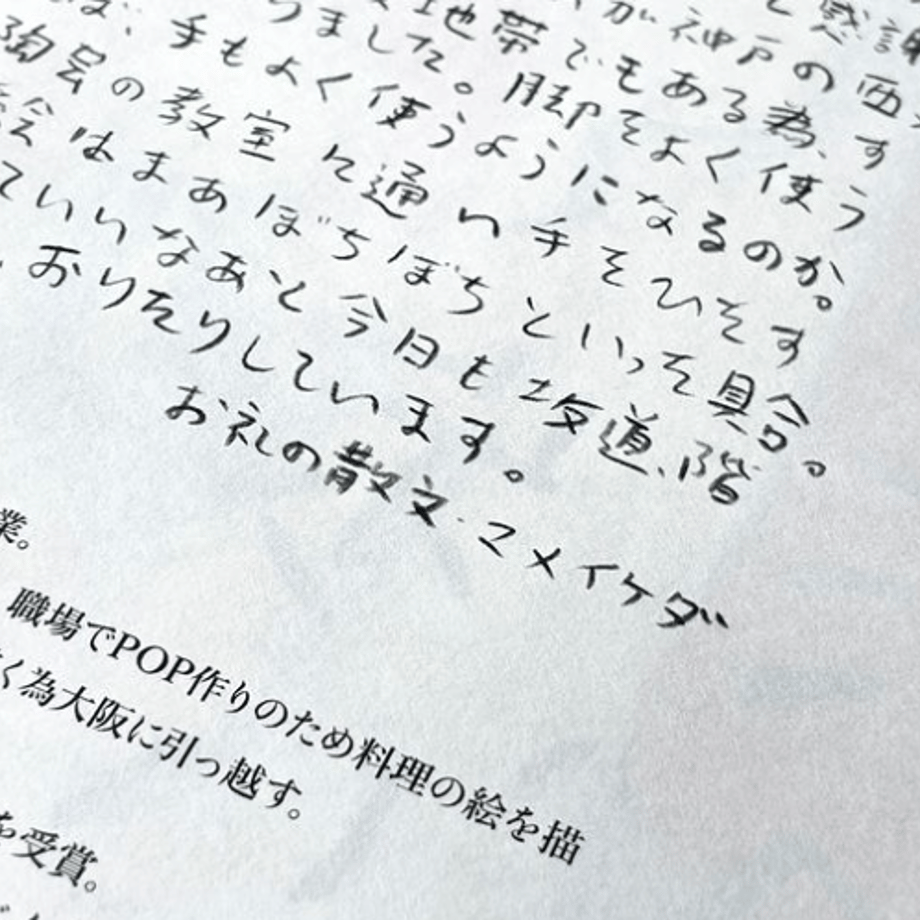 と感謝
が神戸の西
地帯でもある為、す
りました。脚をよく使う
ば、手もよく使うようになるのか。
陶芸の教室に通い手をひたす
絵はまあぼちぼちといった具合。
ていいなあと今日も坂道、階
おりたりしています。
お礼の散文・ユメイケダ
業。
職場でPOP作りのため料理の絵を描
く為大阪に引っ越す。
を受賞。